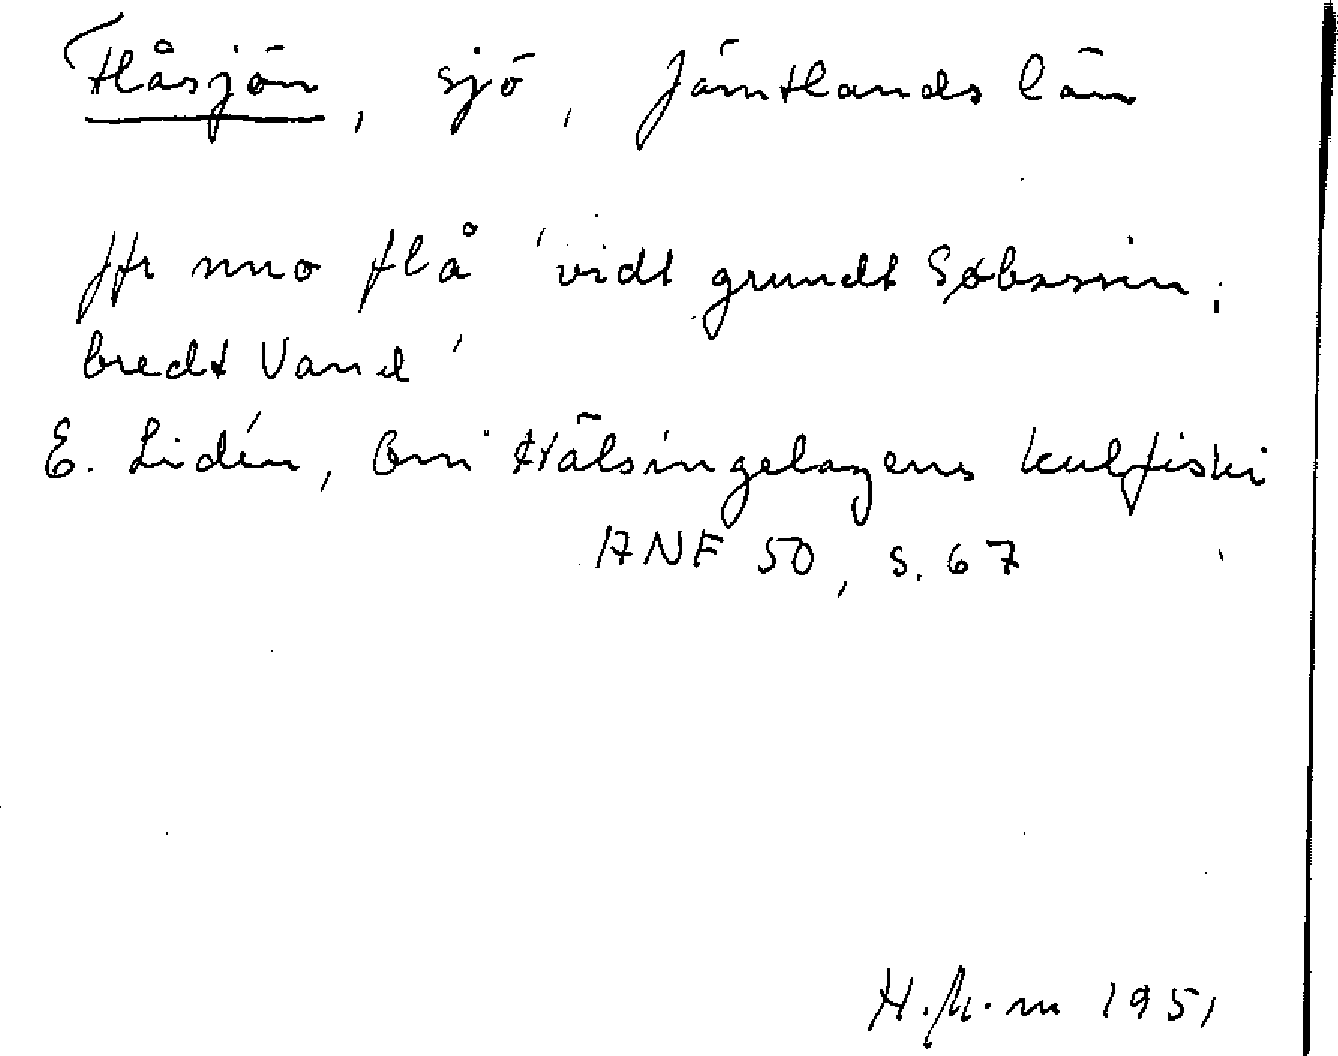 Flåsjön, sjö, Jämtlands län
Jfr nno flå 'vidt grundt Søbassin,
bredt Vand'
E. Lidén, Om Hälsingelagens kulfiski
ANF 50, s. 67
H. 1951